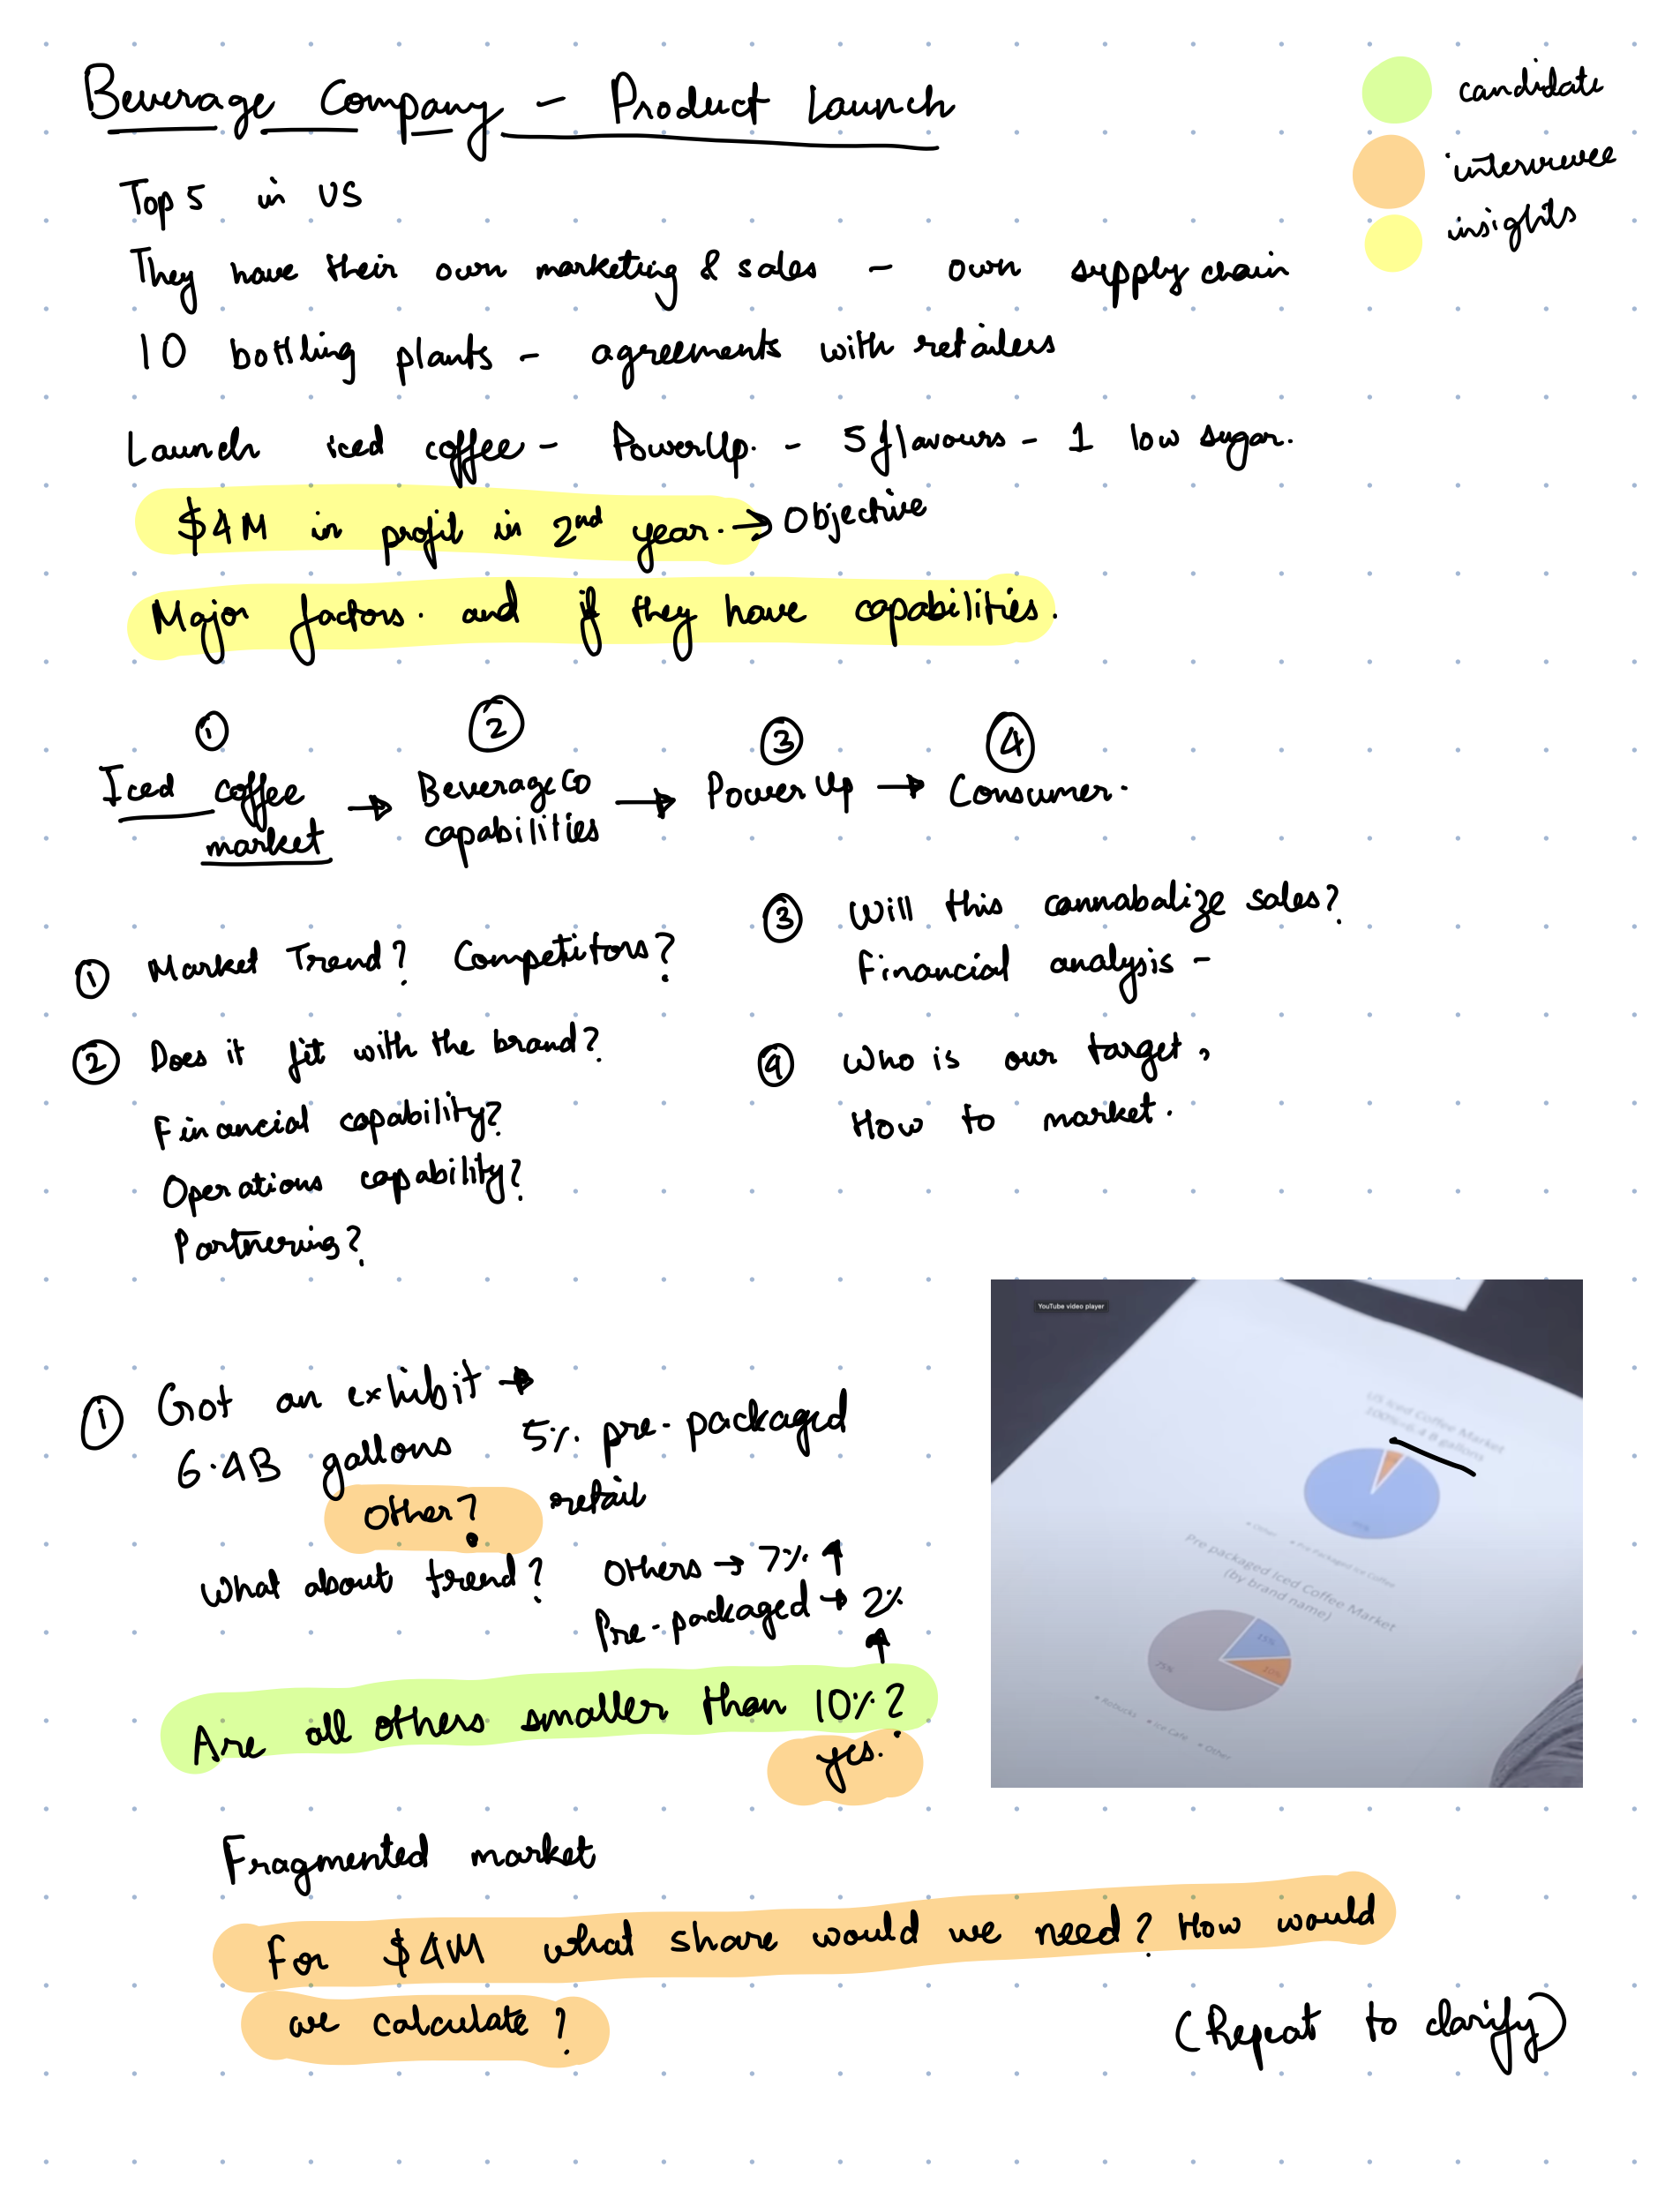 Beverage Company - Product Launch
candidate
interviewee
insights
Top 5 in US
They have their own marketing & sales - own supply chain
10 bottling plants - agreements with retailers
Launch iced coffee - PowerUp. - 5 flavours - 1 low sugar.
$4M in profit in 2nd year. → Objective
Major factors. and if they have capabilities.
① ② ③ ④
Iced coffee market → BeverageCo capabilities → PowerUp → Consumer.
① Market Trend? Competitors?
② Does it fit with the brand?
Financial capability?
Operations capability?
Partnering?
③ Will this cannabalize sales?
Financial analysis -
④ Who is our target,
How to market.
① Got an exhibit →
6.4B gallons 5% pre-packaged
Other? retail
What about trend? Others → 7% ↑
Pre-packaged → 2%
↑
Are all others smaller than 10%?
yes.
YouTube video player
US Iced Coffee Market
100%=6.4 B gallons
Other Pre Packaged Ice Coffee
Pre packaged Iced Coffee Market
(by brand name)
15%
10%
75%
Ice Cafe Other
Fragmented market
For $4M what share would we need? How would
we calculate?
(Repeat to clarify)